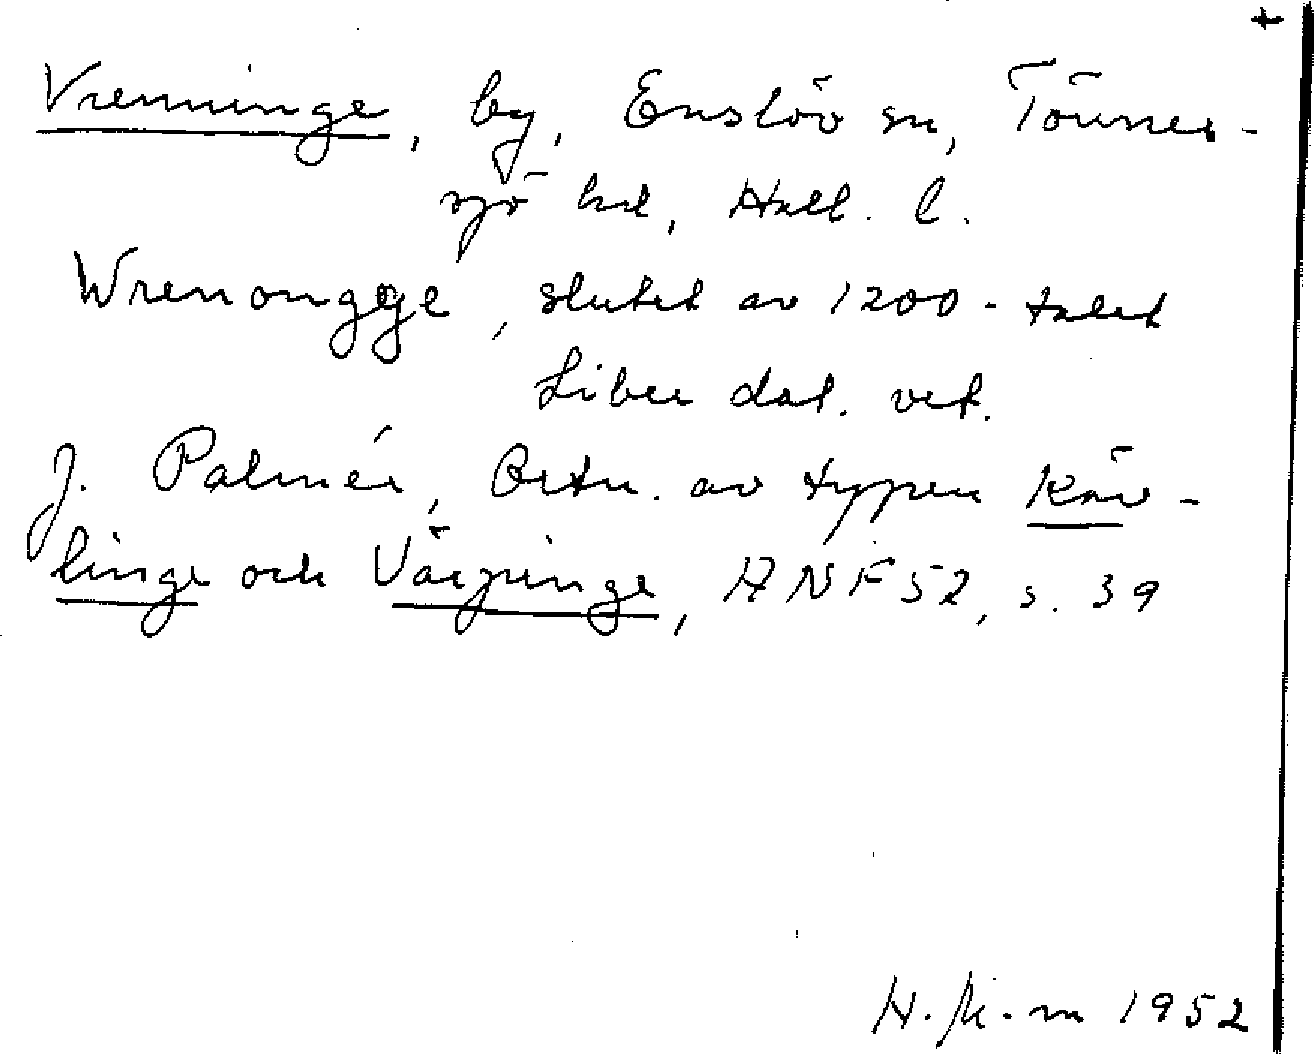 +
Vrenninge, by, Enslöv sn, Tönners-
sjö hd, Hall. l.
Wrenongge, slutet av 1200-talet
Liber dat. vet.
J. Palmér, Ortn. av typen Käv-
linge och Värpinge, ANF 52, s. 39
1952